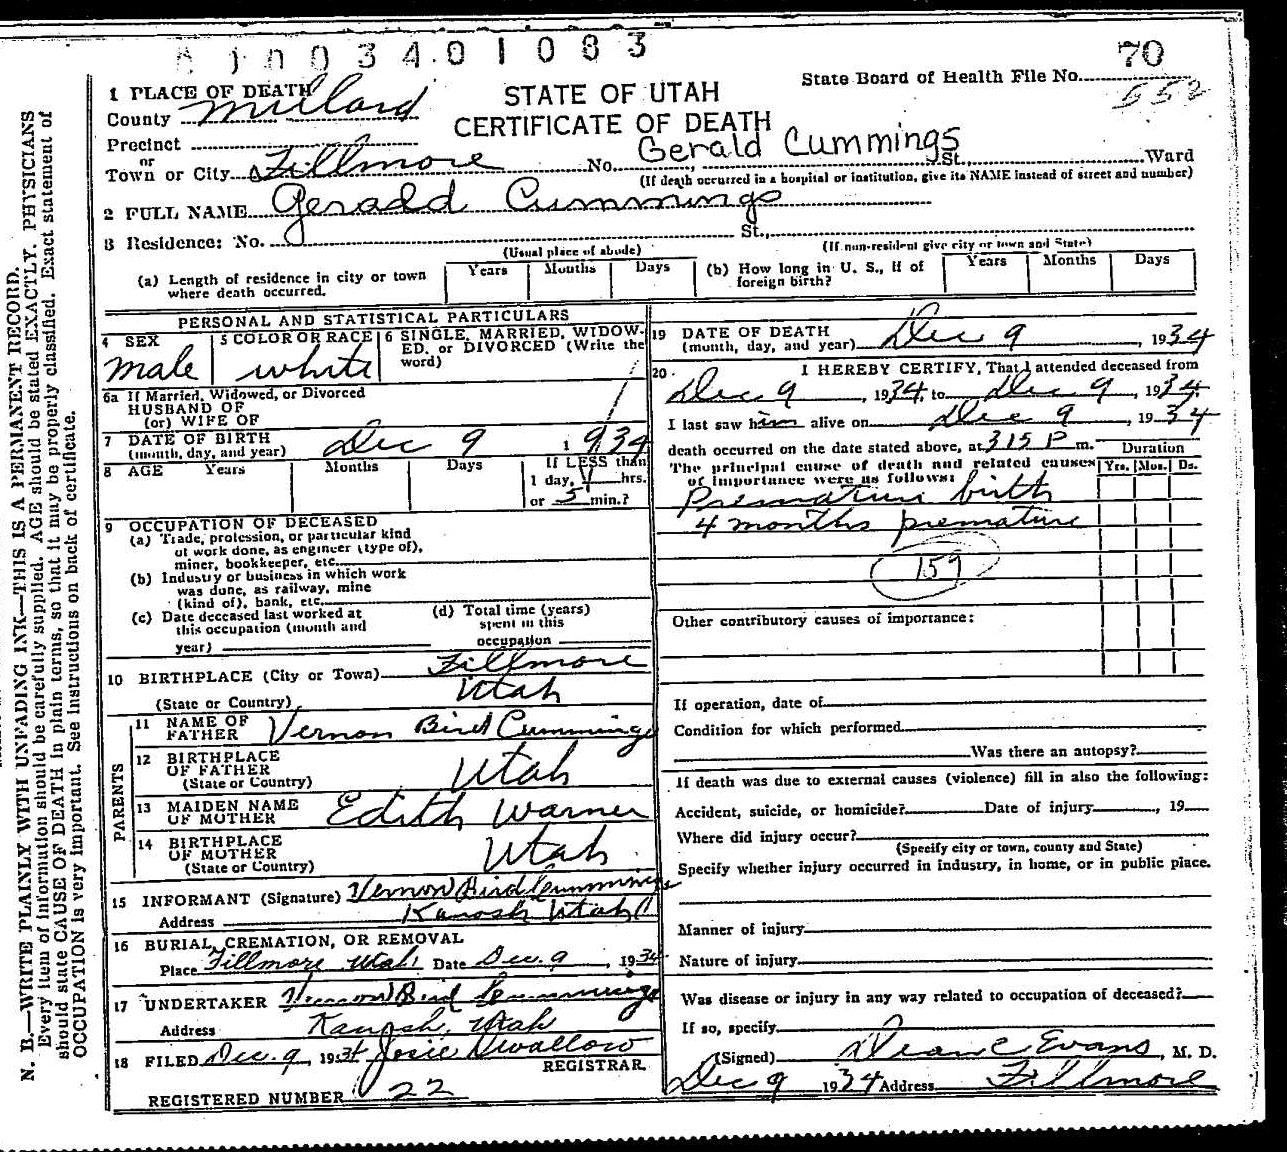 0 1 0 0 3 4 0 1 0 8 3
70
State Board of Health File No.
552
1 PLACE OF DEATH
County Millard
STATE OF UTAH
CERTIFICATE OF DEATH
Precinct
or
Town or City Fillmore No. Gerald Cummings St., Ward
(If death occurred in a hospital or institution, give its NAME instead of street and number)
2 FULL NAME Gerald Cummings
3 Residence: No. St.,
(Usual place of abode) (If non-resident give city or town and State)
(a) Length of residence in city or town where death occurred. Years Months Days (b) How long in U. S., if of foreign birth? Years Months Days
PERSONAL AND STATISTICAL PARTICULARS
4 SEX male
5 COLOR OR RACE white
6 SINGLE, MARRIED, WIDOWED, or DIVORCED (Write the word)
6a If Married, Widowed, or Divorced
HUSBAND OF
(or) WIFE OF
7 DATE OF BIRTH
(month, day, and year) Dec 9 1934
8 AGE Years Months Days If LESS than
1 day, 4 hrs.
or 5 min.?
9 OCCUPATION OF DECEASED
(a) Trade, profession, or particular kind
of work done, as engineer (type of),
miner, bookkeeper, etc.
(b) Industry or business in which work
was done, as railway, mine
(kind of), bank, etc.
(c) Date deceased last worked at
this occupation (month and
year)
(d) Total time (years)
spent in this
occupation
10 BIRTHPLACE (City or Town) Fillmore
(State or Country) Utah
PARENTS
11 NAME OF
FATHER Vernon Bird Cummings
12 BIRTHPLACE
OF FATHER
(State or Country) Utah
13 MAIDEN NAME
OF MOTHER Edith Warner
14 BIRTHPLACE
OF MOTHER
(State or Country) Utah
15 INFORMANT (Signature) Vernon Bird Cummings
Address Kanosh Utah
16 BURIAL, CREMATION, OR REMOVAL
Place Fillmore Utah Date Dec. 9, 1934
17 UNDERTAKER Vernon Bird Cummings
Address Kanosh, Utah
18 FILED Dec. 9 1934 Josie Swallow
REGISTRAR
REGISTERED NUMBER 22
19 DATE OF DEATH
(month, day, and year) Dec 9, 1934
20 I HEREBY CERTIFY, That I attended deceased from
Dec 9, 1934, to Dec 9, 1934.
I last saw him alive on Dec 9, 1934
death occurred on the date stated above, at 3 15 P m.
Duration
The principal cause of death and related causes Yrs. Mos. Ds.
of importance were as follows:
Premature birth
4 months premature
159
Other contributory causes of importance:
If operation, date of
Condition for which performed
Was there an autopsy?
If death was due to external causes (violence) fill in also the following:
Accident, suicide, or homicide? Date of injury, 19
Where did injury occur?
(Specify city or town, county and State)
Specify whether injury occurred in industry, in home, or in public place.
Manner of injury
Nature of injury
Was disease or injury in any way related to occupation of deceased?
If so, specify
(Signed) Dean C Evans, M. D.
Dec 9 1934 Address Fillmore
N. B.—WRITE PLAINLY WITH UNFADING INK—THIS IS A PERMANENT RECORD.
Every item of information should be carefully supplied. AGE should be stated EXACTLY. PHYSICIANS
should state CAUSE OF DEATH in plain terms, so that it may be properly classified. Exact statement of
OCCUPATION is very important. See instructions on back of certificate.